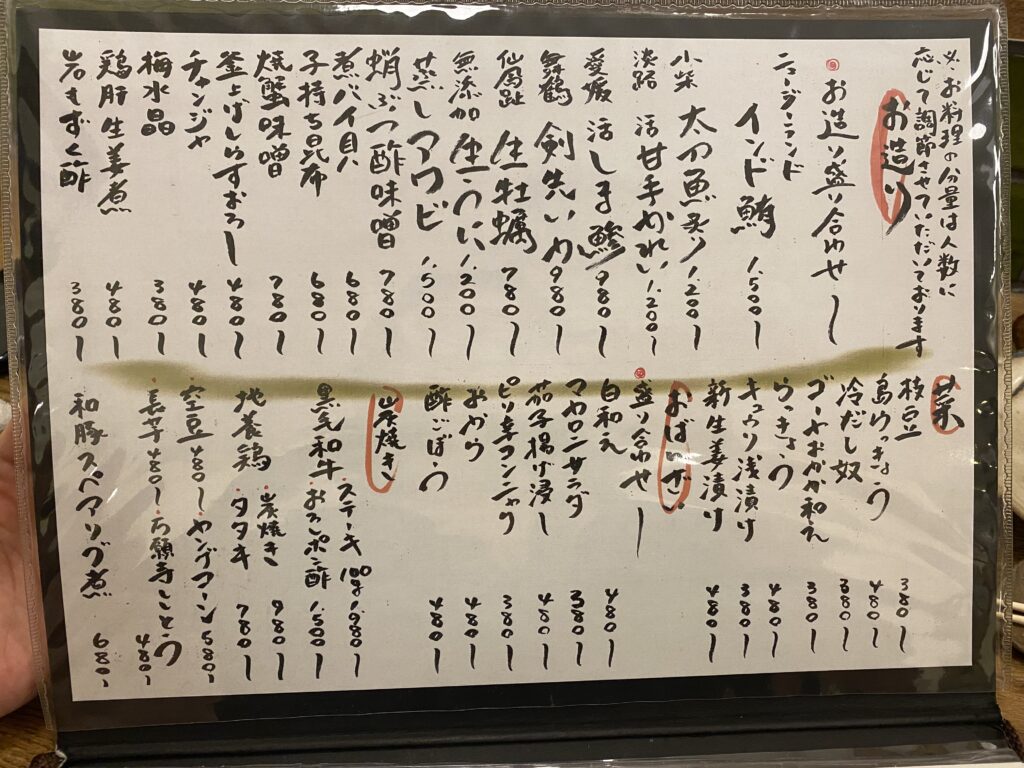 ※お料理の分量は人数に
応じて調節させていただいております
お造り
お造り盛り合わせ ー
ニュージーランド
インド鮪 1.500ー
小柴 太刀魚炙り 1.200ー
淡路 活甘手かれい 1.200ー
愛媛 活しま鯵 980ー
舞鶴 剣先いか 980ー
仙鳳趾 生牡蠣 780ー
無添加 生うに 1.200ー
蒸しアワビ 1.500ー
蛸ぶつ酢味噌 780ー
煮バイ貝 680ー
子持ち昆布 680ー
焼蟹味噌 780ー
釜上げしらすおろし 480ー
チャンジャ 480ー
梅水晶 380ー
鶏肝生姜煮 480ー
岩もずく酢 380ー
菜
枝豆 380ー
島らっきょう 480ー
冷だし奴 380ー
ゴーヤおかか和え 380ー
らっきょう 480ー
キュウリ浅漬け 380ー
新生姜漬け 480ー
おばんざい
盛り合わせ ー
白和え 480ー
マカロニサラダ 380ー
茄子揚げ浸し 480ー
ピリ辛コンニャク 380ー
おから 480ー
酢ごぼう 480ー
炭焼き
黒毛和牛 ・ステーキ 100g 1.980ー
・おろしポン酢 1.500ー
地養鶏 ・炭焼き 980ー
・タタキ 780ー
・空豆 480ー ・ヤングコーン 580ー
・長芋 480ー ・万願寺しとう 480ー
和豚スペアリブ煮 680ー